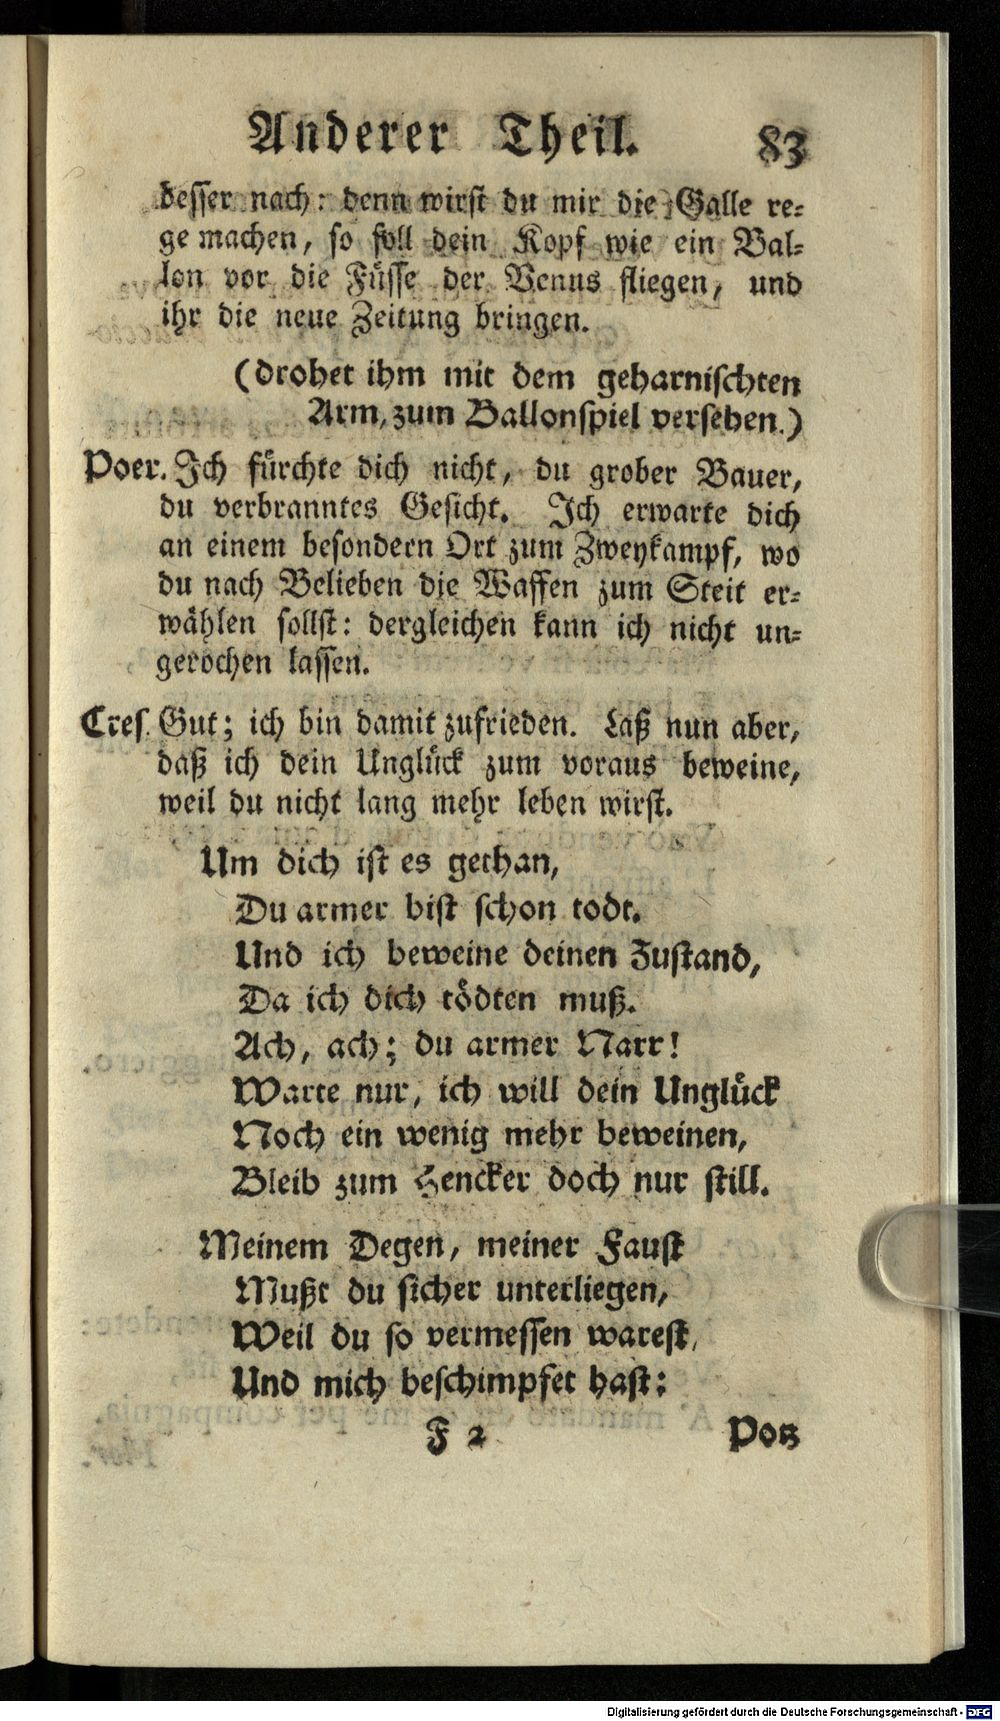 Anderer Theil. 83
besser nach: denn wirst du mir die Galle re-
ge machen, so soll dein Kopf wie ein Bal-
lon vor die Füsse der Venus fliegen, und
ihr die neue Zeitung bringen.
(drohet ihm mit dem geharnischten
Arm, zum Ballonspiel versehen.)
Poer. Ich fürchte dich nicht, du grober Bauer,
du verbranntes Gesicht. Ich erwarte dich
an einem besondern Ort zum Zweykampf, wo
du nach Belieben die Waffen zum Steit er-
wählen sollst: dergleichen kann ich nicht un-
gerochen lassen.
Cres. Gut; ich bin damit zufrieden. Laß nun aber,
daß ich dein Unglück zum voraus beweine,
weil du nicht lang mehr leben wirst.
Um dich ist es gethan,
Du armer bist schon todt.
Und ich beweine deinen Zustand,
Da ich dich tödten muß.
Ach, ach; du armer Narr!
Warte nur, ich will dein Unglück
Noch ein wenig mehr beweinen,
Bleib zum Hencker doch nur still.
Meinem Degen, meiner Faust
Mußt du sicher unterliegen,
Weil du so vermessen warest,
Und mich beschimpfet hast:
F 2 Potz
Digitalisierung gefördert durch die Deutsche Forschungsgemeinschaft - DFG